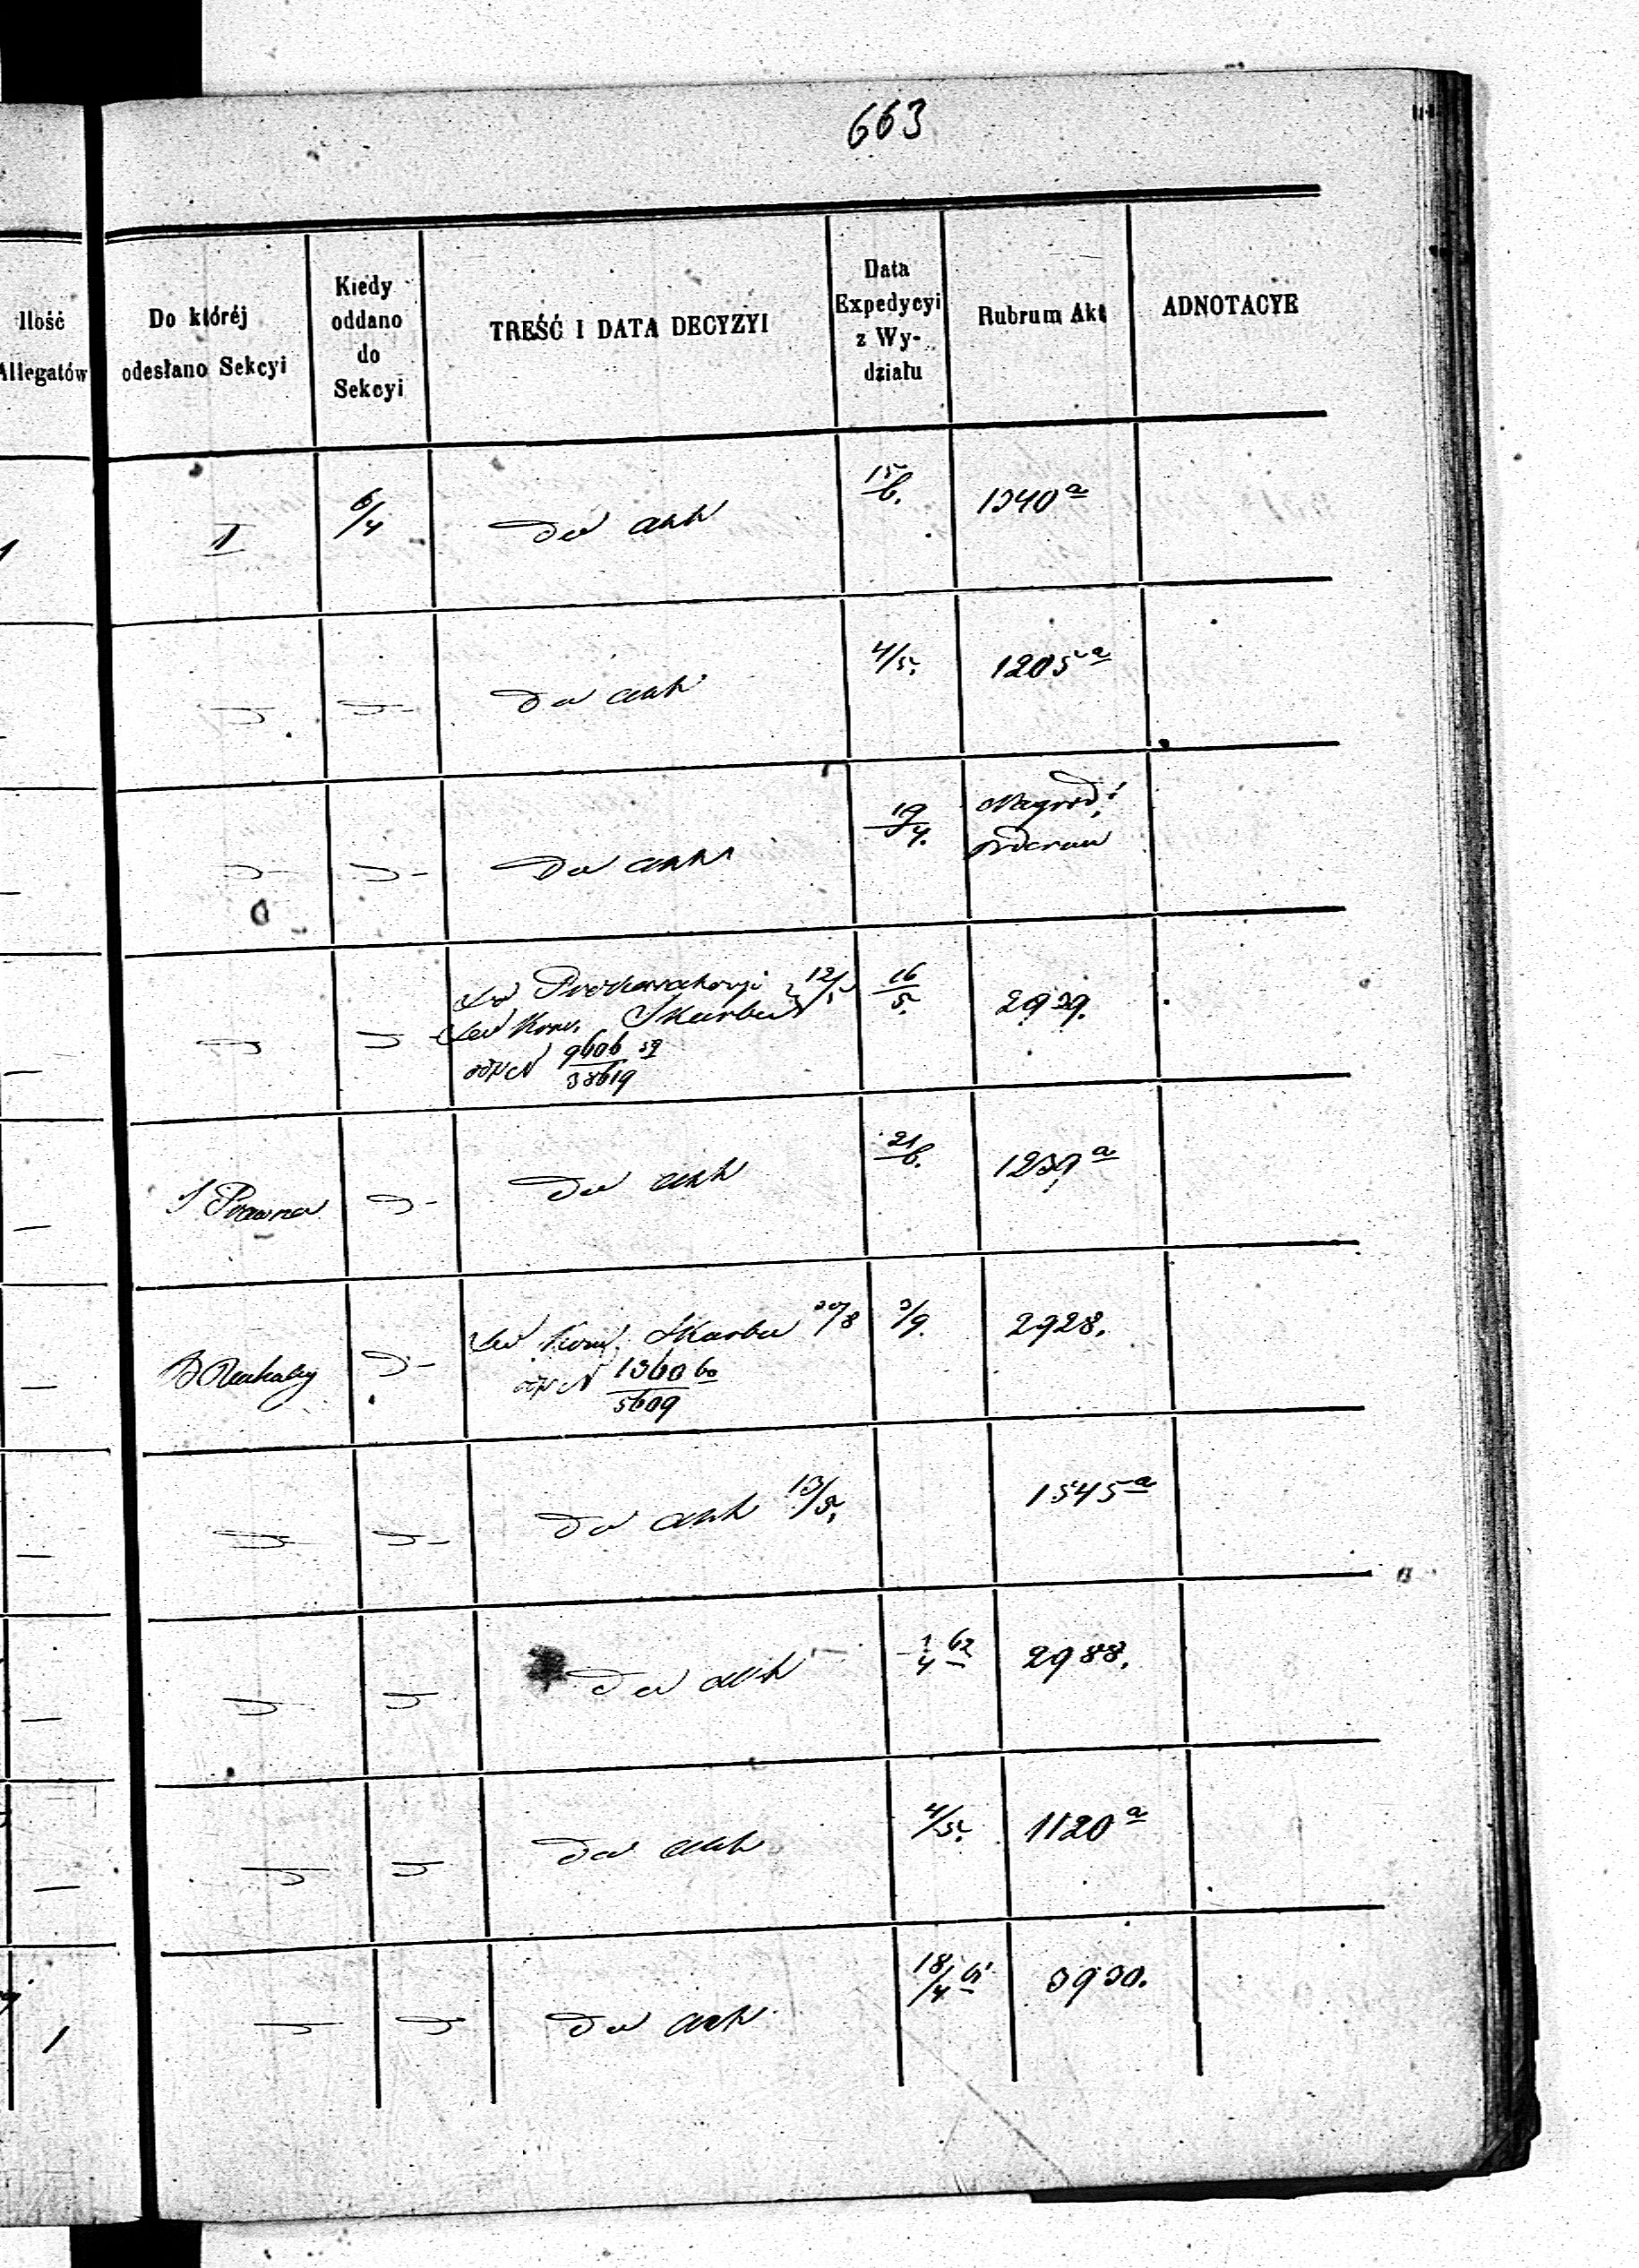 663
Ilość
Allegatów
Do któréj
odesłano Sekcyi
Kiedy
oddano
do
Sekcyi
TREŚĆ I DATA DECYZYI
Data
Expedycyi
z Wy-
działu
Rubrum Akt
ADNOTACYE
1
I
6/4
Do akt
15/6.
1340 a
Do akt
4/5.
1205 a
Do akt
19/4.
Do Prokuratoryi 12/5
Do Kom. Skarbu
N 9606 59
38619
16/5.
2939.
S Prawna
Do akt
21/6.
1239 a
Do Kom. Skarbu 20/8
N 1360 60
5609
3/9.
2928.
Do akt 13/5.
1545 a
Do akt
1/4 62
2988.
Do akt
4/5.
1120 a
1
Do akt
18/4 61
3930.